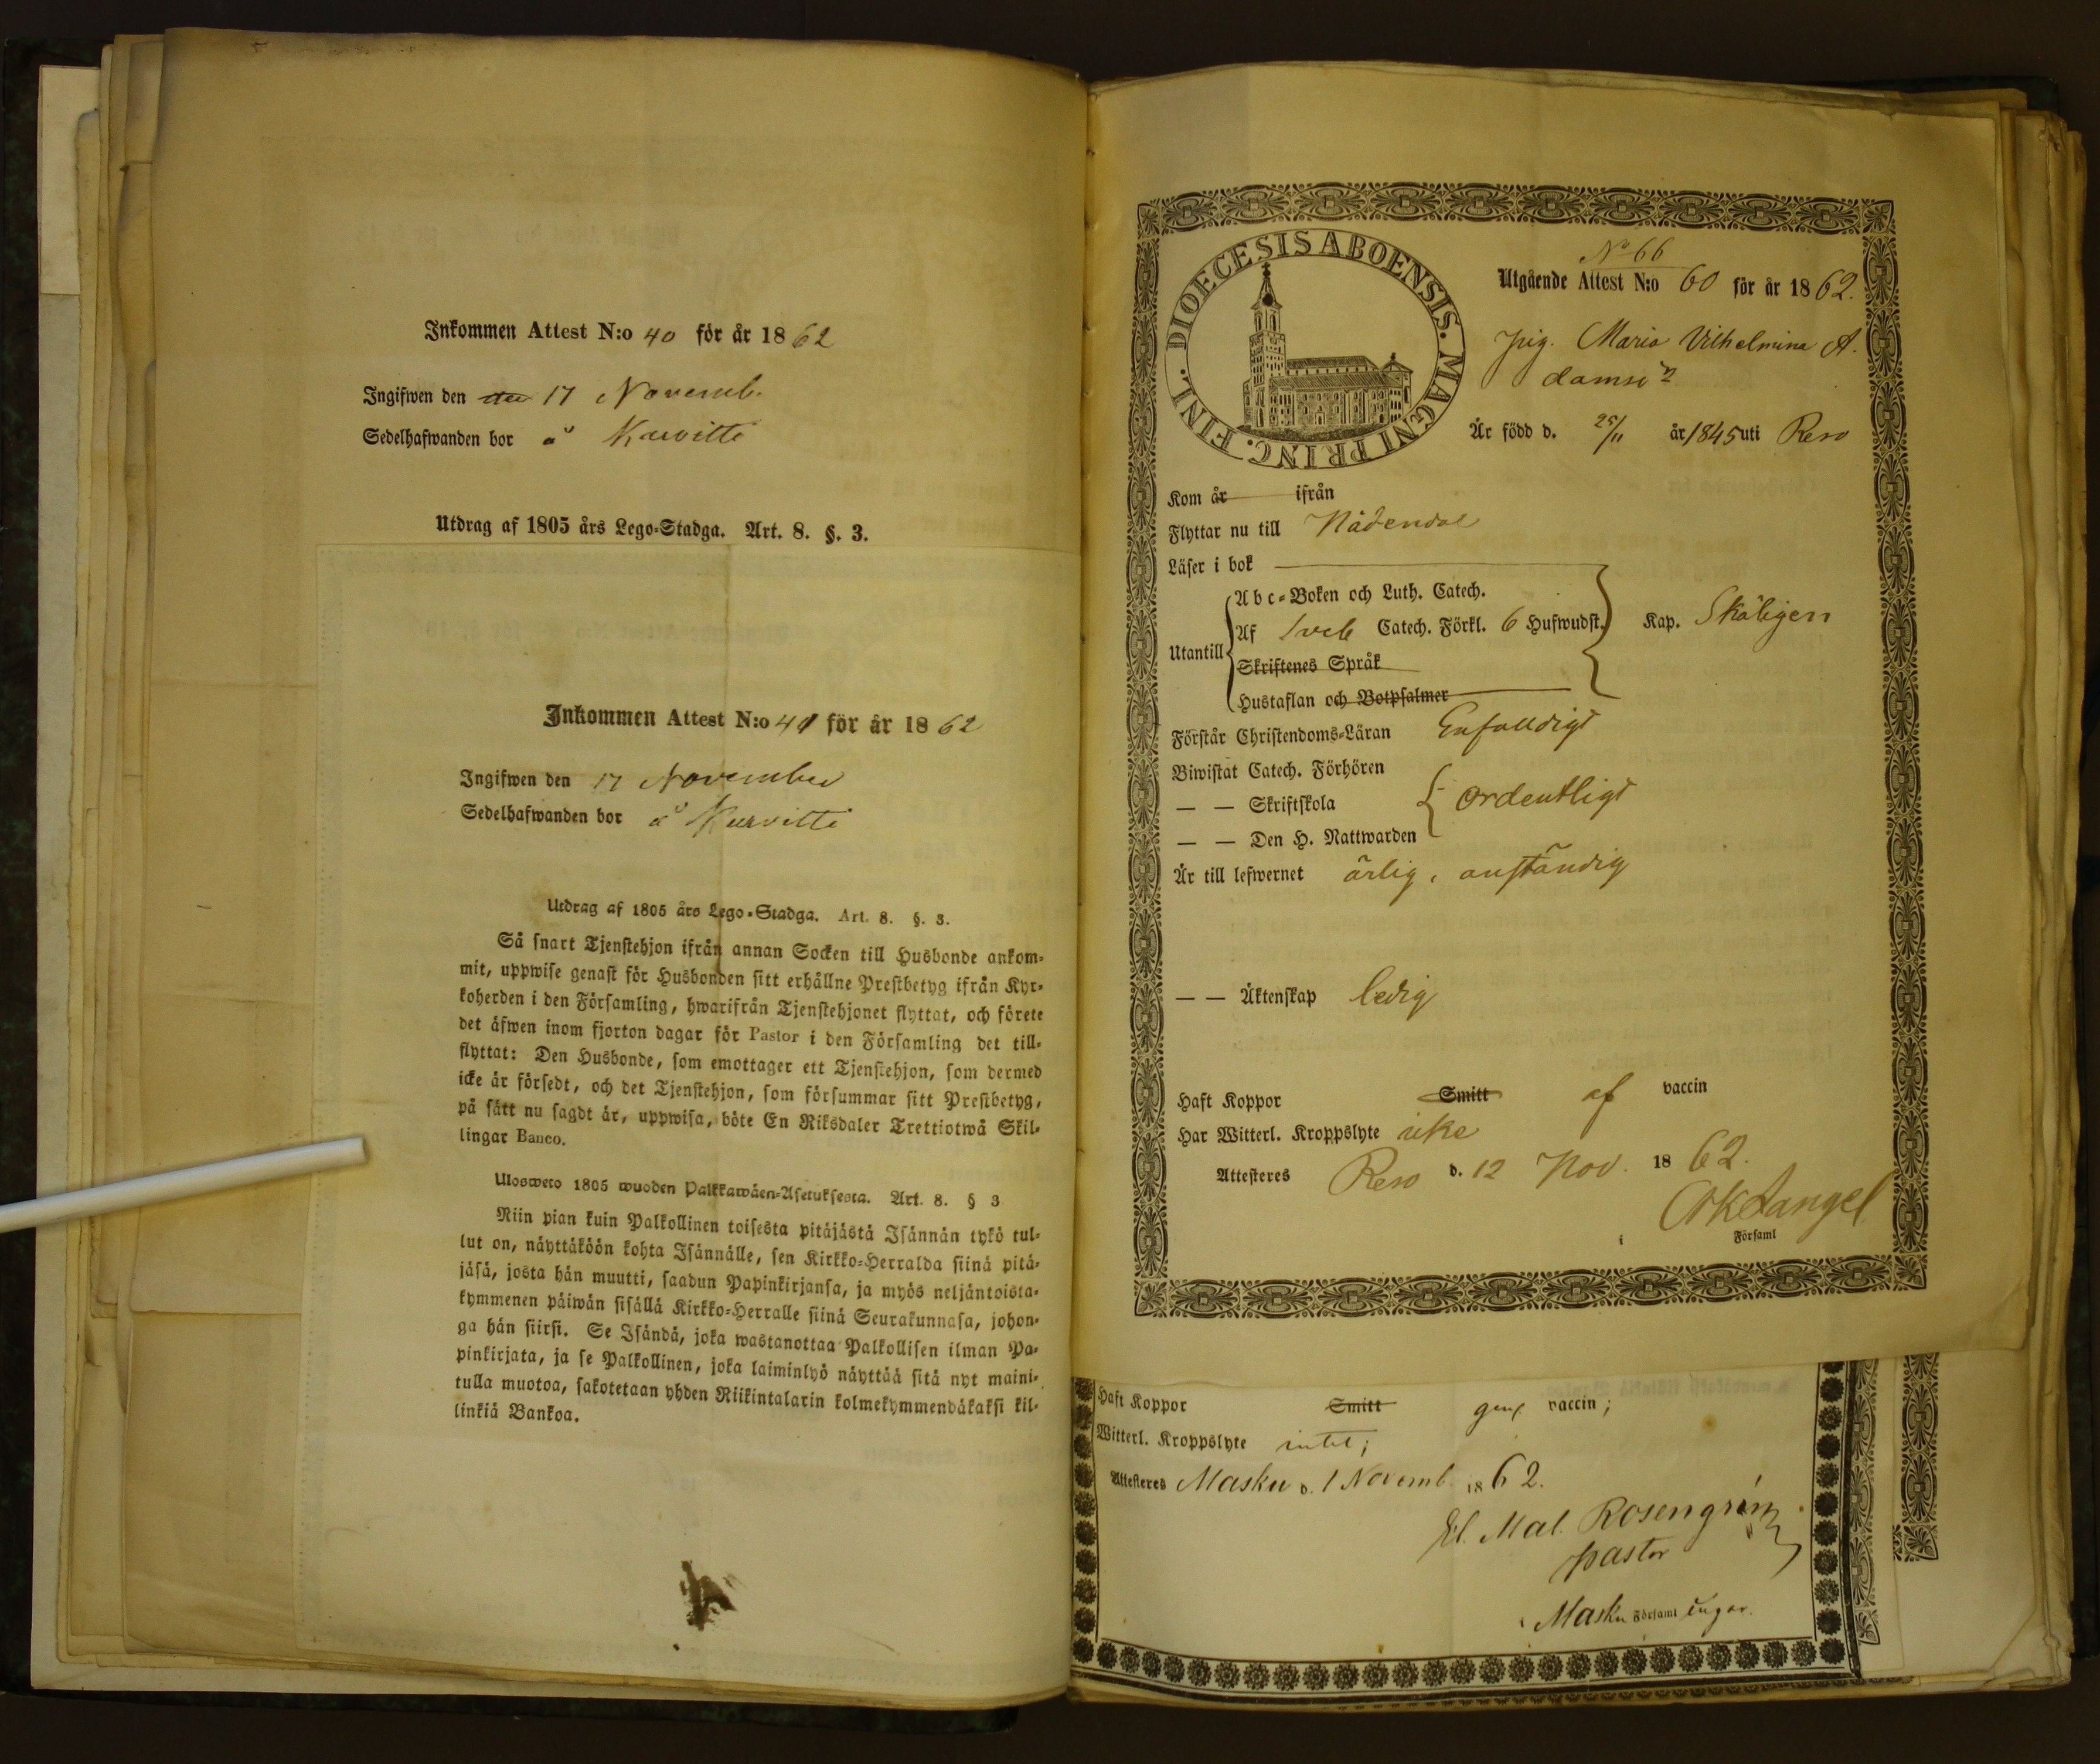 Inkommen Attest N:o 40 för år 1862
Ingifwen den 17 Novemb.
Sedelhafwanden bor å Kurvitti
Utdrag af 1805 års Lego-Stadga. Art. 8. §. 3.
Inkommen Attest N:o 41 för år 1862
Ingifwen den 17 November
Sedelhafwanden bor å Kurvitti
Utdrag af 1805 års Lego-Stadga. Art. 8. §. 3.
Så snart Tjenstehjon ifrån annan Socken till Husbonde ankom-
mit, uppwise genast för Husbonden sitt erhållne Prestbetyg ifrån Kyr-
koherden i den Församling, hwarifrån Tjenstehjonet flyttat, och förete
det äfwen inom fjorton dagar för Pastor i den Församling det till-
flyttat: Den Husbonde, som emottager ett Tjenstehjon, som dermed
icke är försedt, och det Tjenstehjon, som försummar sitt Prestbetyg,
på sätt nu sagdt är, uppwisa, böte En Riksdaler Trettiotwå Skil-
lingar Banco.
Ulosweto 1805 wuoden Palkkawäen-Asetuksesta. Art. 8. § 3
Niin pian kuin Palkollinen toisesta pitäjästä Isännän tykö tul-
lut on, näyttäköön kohta Isännälle, sen Kirkko-Herralda siinä pitä-
jäsä, josta hän muutti, saadun Papinkirjansa, ja myös neljäntoista-
kymmenen päiwän sisällä Kirkko-Herralle siinä Seurakunnasa, johon-
ga hän siirsi. Se Isändä, joka wastanottaa Palkollisen ilman Pa-
pinkirjata, ja se Palkollinen, joka laiminlyö näyttää sitä nyt maini-
tulla muotoa, sakotetaan yhden Riikintalarin kolmekymmendäkaksi kil-
linkiä Bankoa.
DIOECESIS ABOENSIS. MAGNI PRINC. FINL.
No 66
Utgående Attest N:o 60 för år 1862.
Pig. Maria Vilhelmina A.
damsdr
Är född d. 25/11 år 1845 uti Reso
Kom år ifrån
Flyttar nu till Nådendal
Läser i bok
Abc-Boken och Luth. Catech.
Af Sveb Catech. Förkl. 6 Hufwudst. Kap. Skäligen
Utantill
Skriftenes Språk
Hustaflan och Botpsalmer
Förstår Christendoms-Läran Enfalldigt
Biwistat Catech. Förhören
— — Skriftskola ordentligt
— — Den H. Nattwarden
Är till lefwernet ärlig, anständig
— — Äktenskap ledig
Haft Koppor Smitt af vaccin
Har Witterl. Kroppslyte icke
Attesteres Reso d. 12 Nov. 1862.
i Församl
Haft Koppor Smitt gen vaccin;
Witterl. Kroppslyte intet;
Attesteres Masku d. 1 Novemb 1862.
El. Mal. Rosengrén
pastor
i Masku Församl ingar.